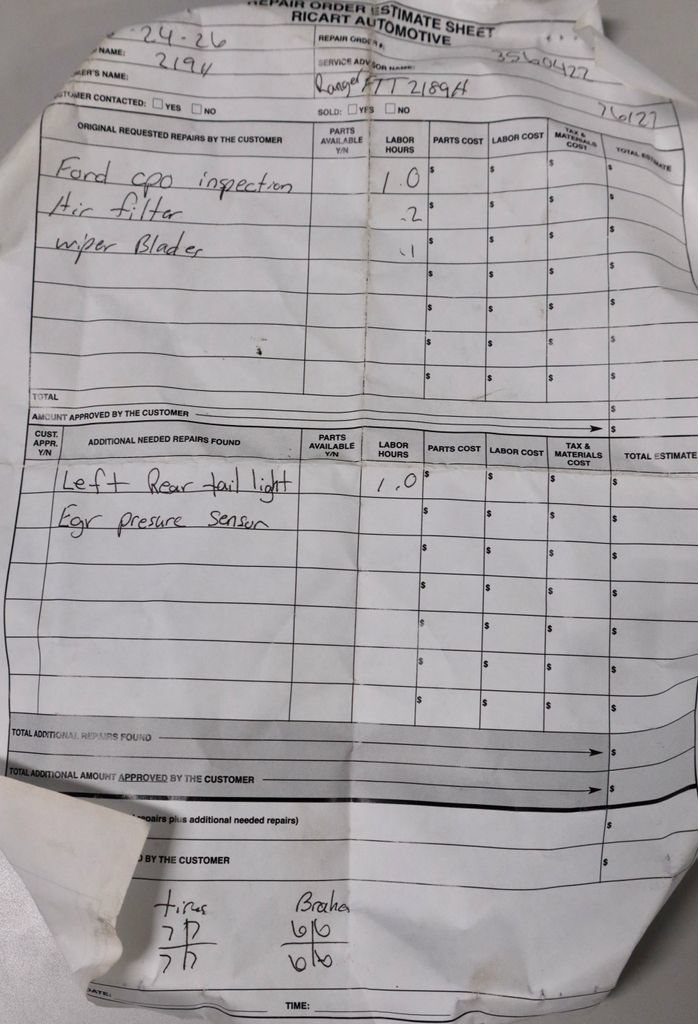 REPAIR ORDER ESTIMATE SHEET
RICART AUTOMOTIVE
-24-26
REPAIR ORDER #: 3560422
NAME: 2194
SERVICE ADVISOR NAME:
MER'S NAME:
Ranger FTT2189A
STOMER CONTACTED: YES NO
SOLD: YES NO
76127
ORIGINAL REQUESTED REPAIRS BY THE CUSTOMER PARTS AVAILABLE Y/N LABOR HOURS PARTS COST LABOR COST TAX & MATERIALS COST TOTAL ESTIMATE
Ford cpo inspection 1.0 $ $ $ $
Air filter .2 $ $ $ $
wiper Blades .1 $ $ $ $
$ $ $ $
$ $ $ $
$ $ $ $
$ $ $ $
TOTAL $
AMOUNT APPROVED BY THE CUSTOMER $
CUST. APPR. Y/N ADDITIONAL NEEDED REPAIRS FOUND PARTS AVAILABLE Y/N LABOR HOURS PARTS COST LABOR COST TAX & MATERIALS COST TOTAL ESTIMATE
Left Rear tail light 1.0 $ $ $ $
Egr presure sensor $ $ $ $
$ $ $ $
$ $ $ $
$ $ $ $
$ $ $ $
$ $ $ $
TOTAL ADDITIONAL REPAIRS FOUND $
TOTAL ADDITIONAL AMOUNT APPROVED BY THE CUSTOMER $
repairs plus additional needed repairs) $
D BY THE CUSTOMER $
tires Brakes
7 7 6 6
7 7 6 6
DATE:
TIME: